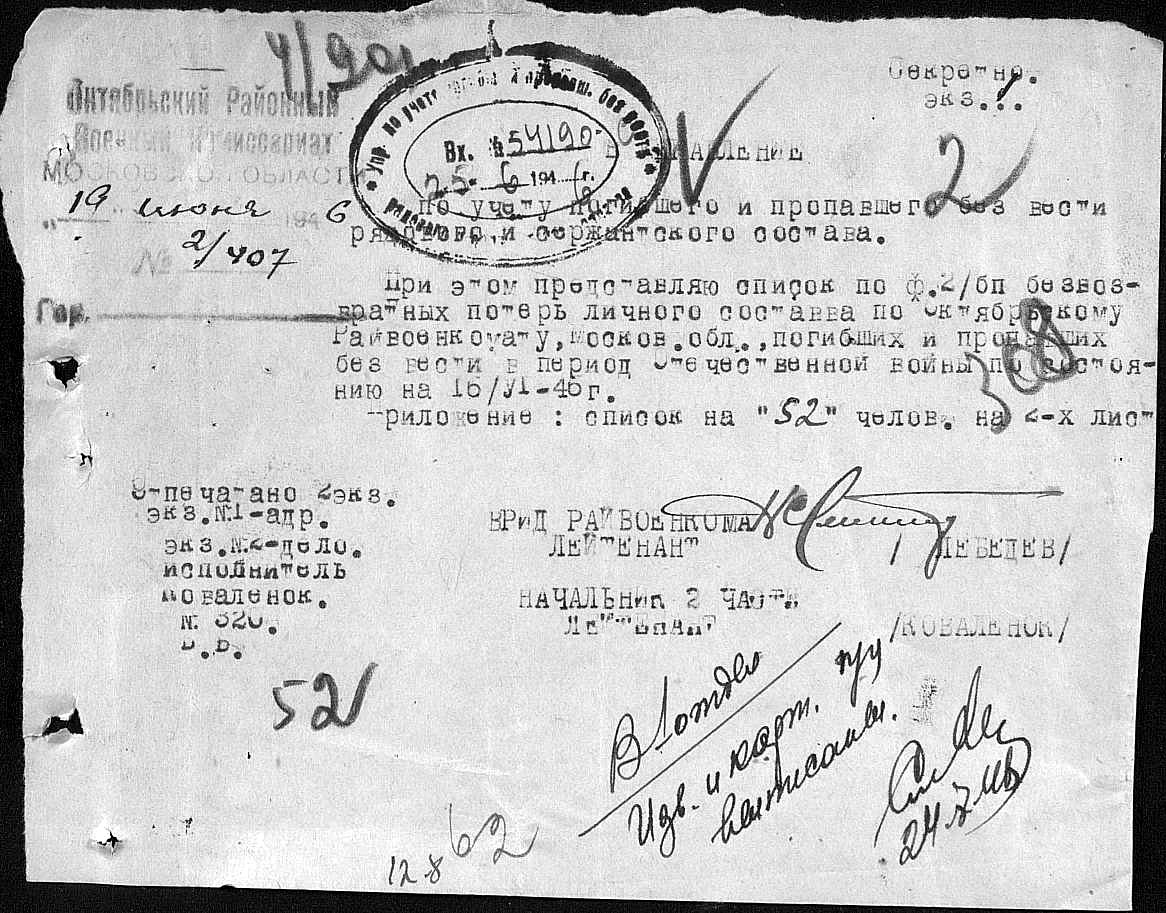 4/201
Секретно.
экз. 1.
Октябрьский Районный
Военный Комиссариат
МОСКОВСКОЙ ОБЛАСТИ
"19" июня 1946
№ 2/407
Гор.
Упр. по учету погибш. и пропавш. без вести
Вх. № 54190
25 6 1946 г.
рядового и
В УПРАВЛЕНИЕ
2
по учету погибшего и пропавшего без вести
рядового и сержантского состава.
При этом представляю список по ф.2/бп безвоз-
вратных потерь личного состава по Октябрьскому
Райвоенкомату, Москов.обл.,погибших и пропавших
без вести в период Отечественной войны по состоя-
нию на 16/VI-46г.
308
Приложение : список на "52" челов. на 2-х лист
Отпечатано 2экз.
экз.№1-адр.
экз.№2-дело.
исполнитель
Коваленок.
№ 320.
ВРиД РАЙВОЕНКОМА
ЛЕЙТЕНАНТ /ЛЕБЕДЕВ/
НАЧАЛЬНИК 2 ЧАСТИ
ЛЕЙТЕНАНТ /КОВАЛЕНОК/
52
В 1 отдел
Изв. и карт.
24.7.46
12.8 62